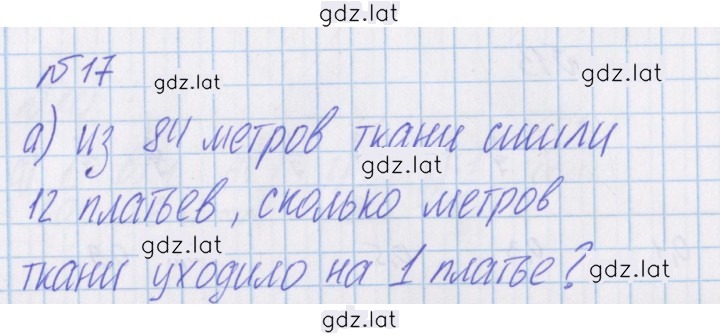 gdz.lat
№17
gdz.lat
gdz.lat
а) из 84 метров ткани сшили
gdz.lat
12 платьев, сколько метров
gdz.lat
ткани уходило на 1 платье?
gdz.lat
gdz.lat